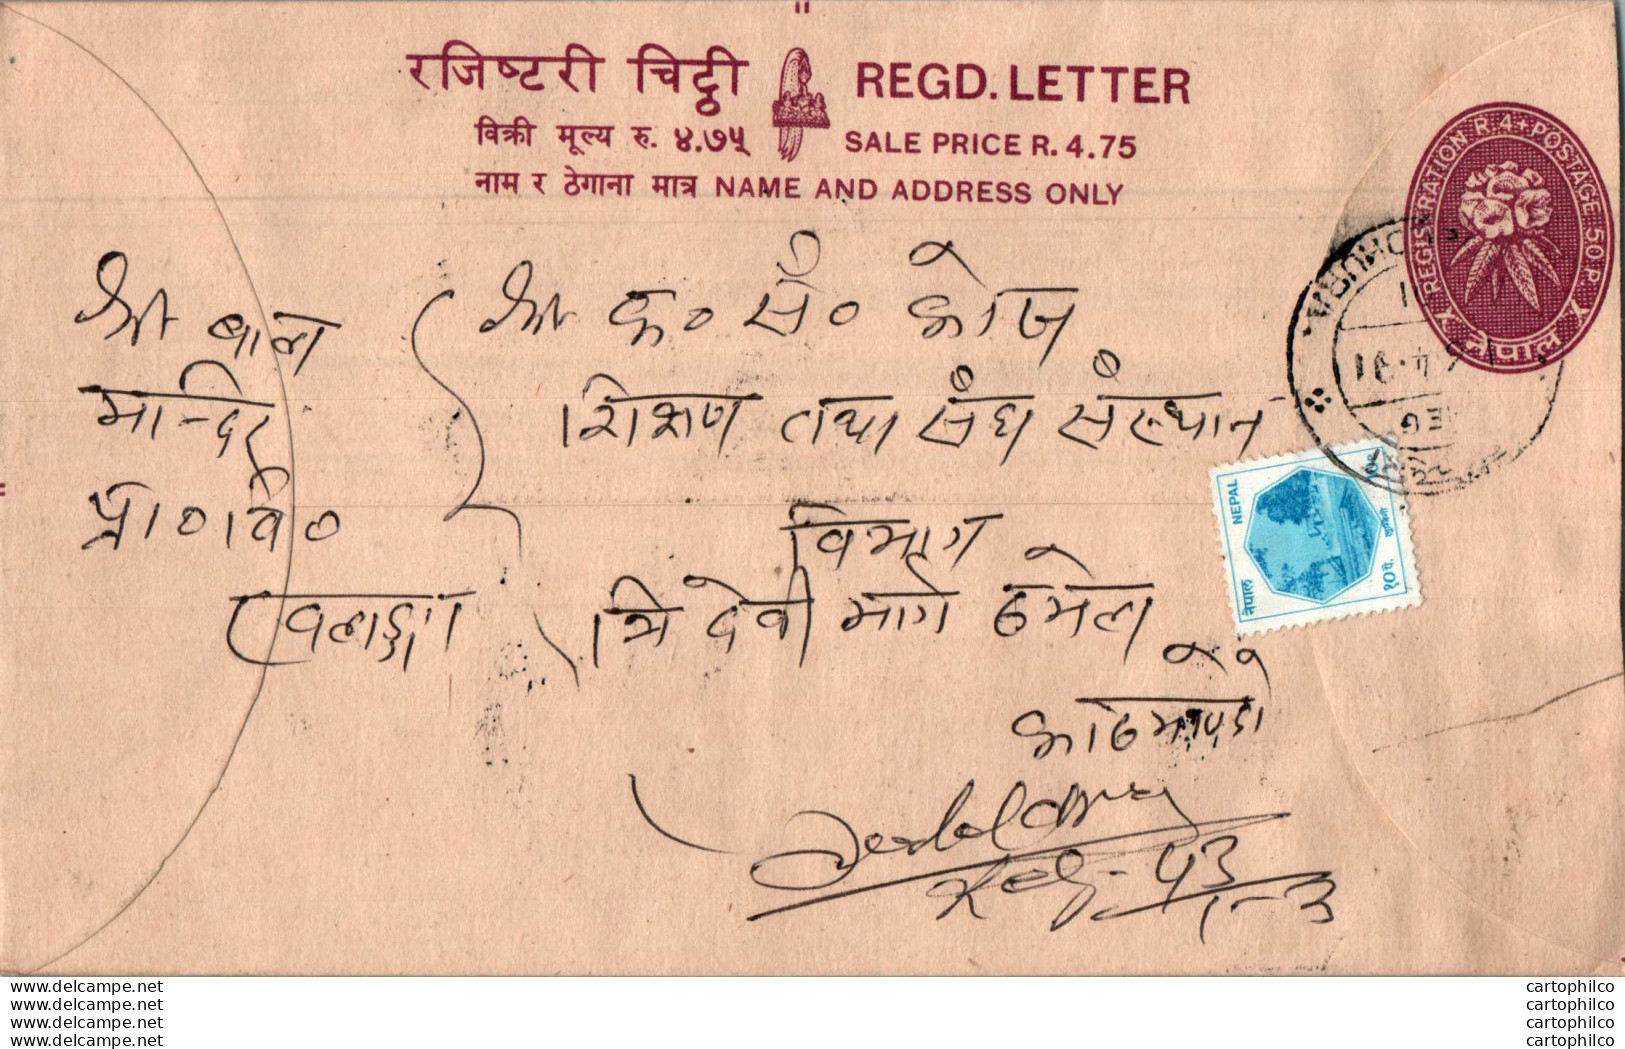 रजिष्टरी चिट्ठी REGD. LETTER
विक्री मूल्य रु. ४.७५ SALE PRICE R. 4.75
नाम र ठेगाना मात्र NAME AND ADDRESS ONLY
REGISTRATION R.4+POSTAGE 50 P.
नेपाल
श्री बाल
मन्दिर
प्रा०वि०
श्री क० सं० कोष
शिक्षण तथा संघ संस्थान
विभाग
त्रिदेवी मार्ग ठमेल
काठमाण्डौ
NEPAL
नेपाल
१० प.
Reg-
www.delcampe.net
www.delcampe.net
www.delcampe.net
www.delcampe.net
cartophilco
cartophilco
cartophilco
cartophilco